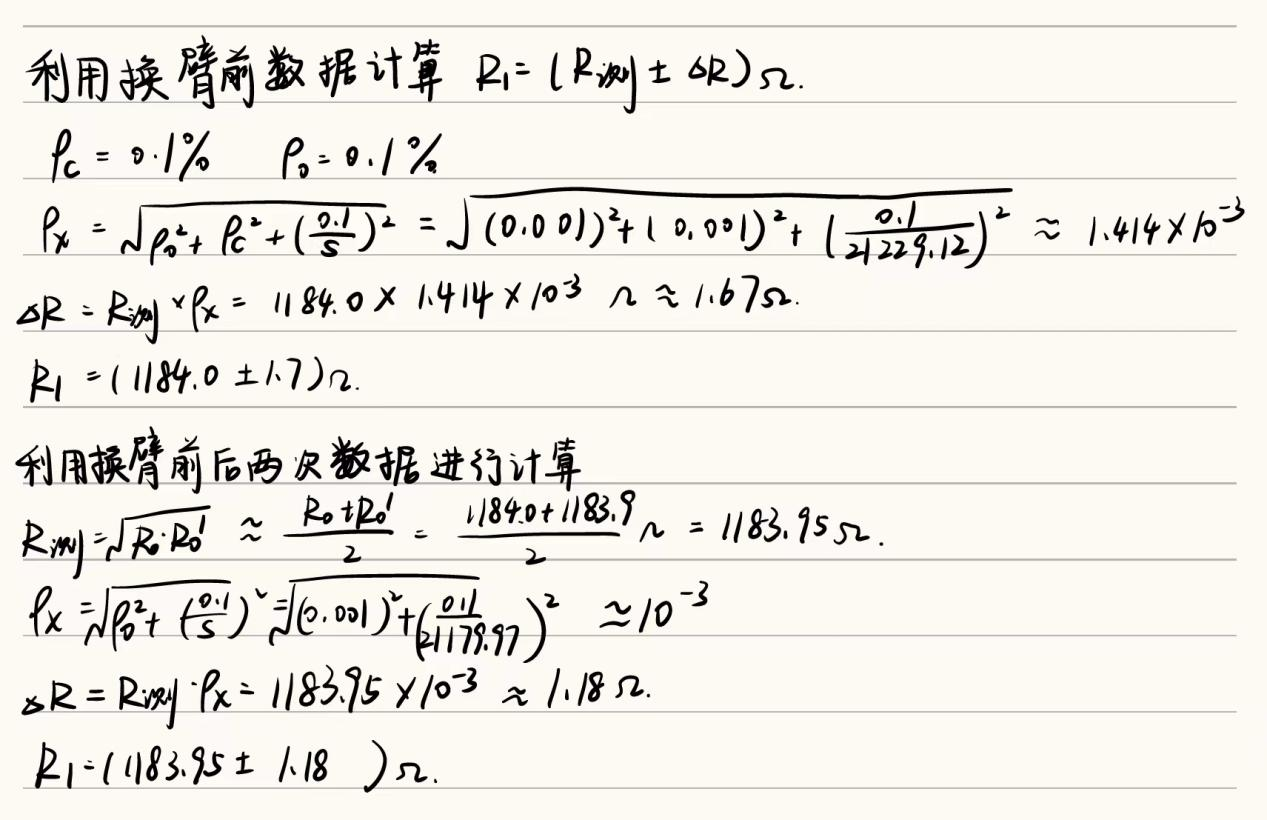 利用换臂前数据计算 R₁=(R测±ΔR)Ω.
ρc = 0.1% ρ₀=0.1%
ρx = √(ρ₀²+ρc²+(0.1/S)²) = √((0.001)²+(0.001)²+(0.1/21229.12)²) ≈ 1.414×10⁻³
ΔR = R测×ρx = 1184.0×1.414×10⁻³ Ω ≈ 1.67Ω.
R₁ =(1184.0±1.7)Ω.
利用换臂前后两次数据进行计算
R测=√(R₀·R₀') ≈ (R₀+R₀')/2 = (1184.0+1183.9)/2 Ω = 1183.95Ω.
ρx=√(ρ₀²+(0.1/S)²)=√((0.001)²+(0.1/21179.97)²) ≈10⁻³
ΔR=R测·ρx=1183.95×10⁻³≈1.18Ω.
R₁=(1183.95±1.18)Ω.